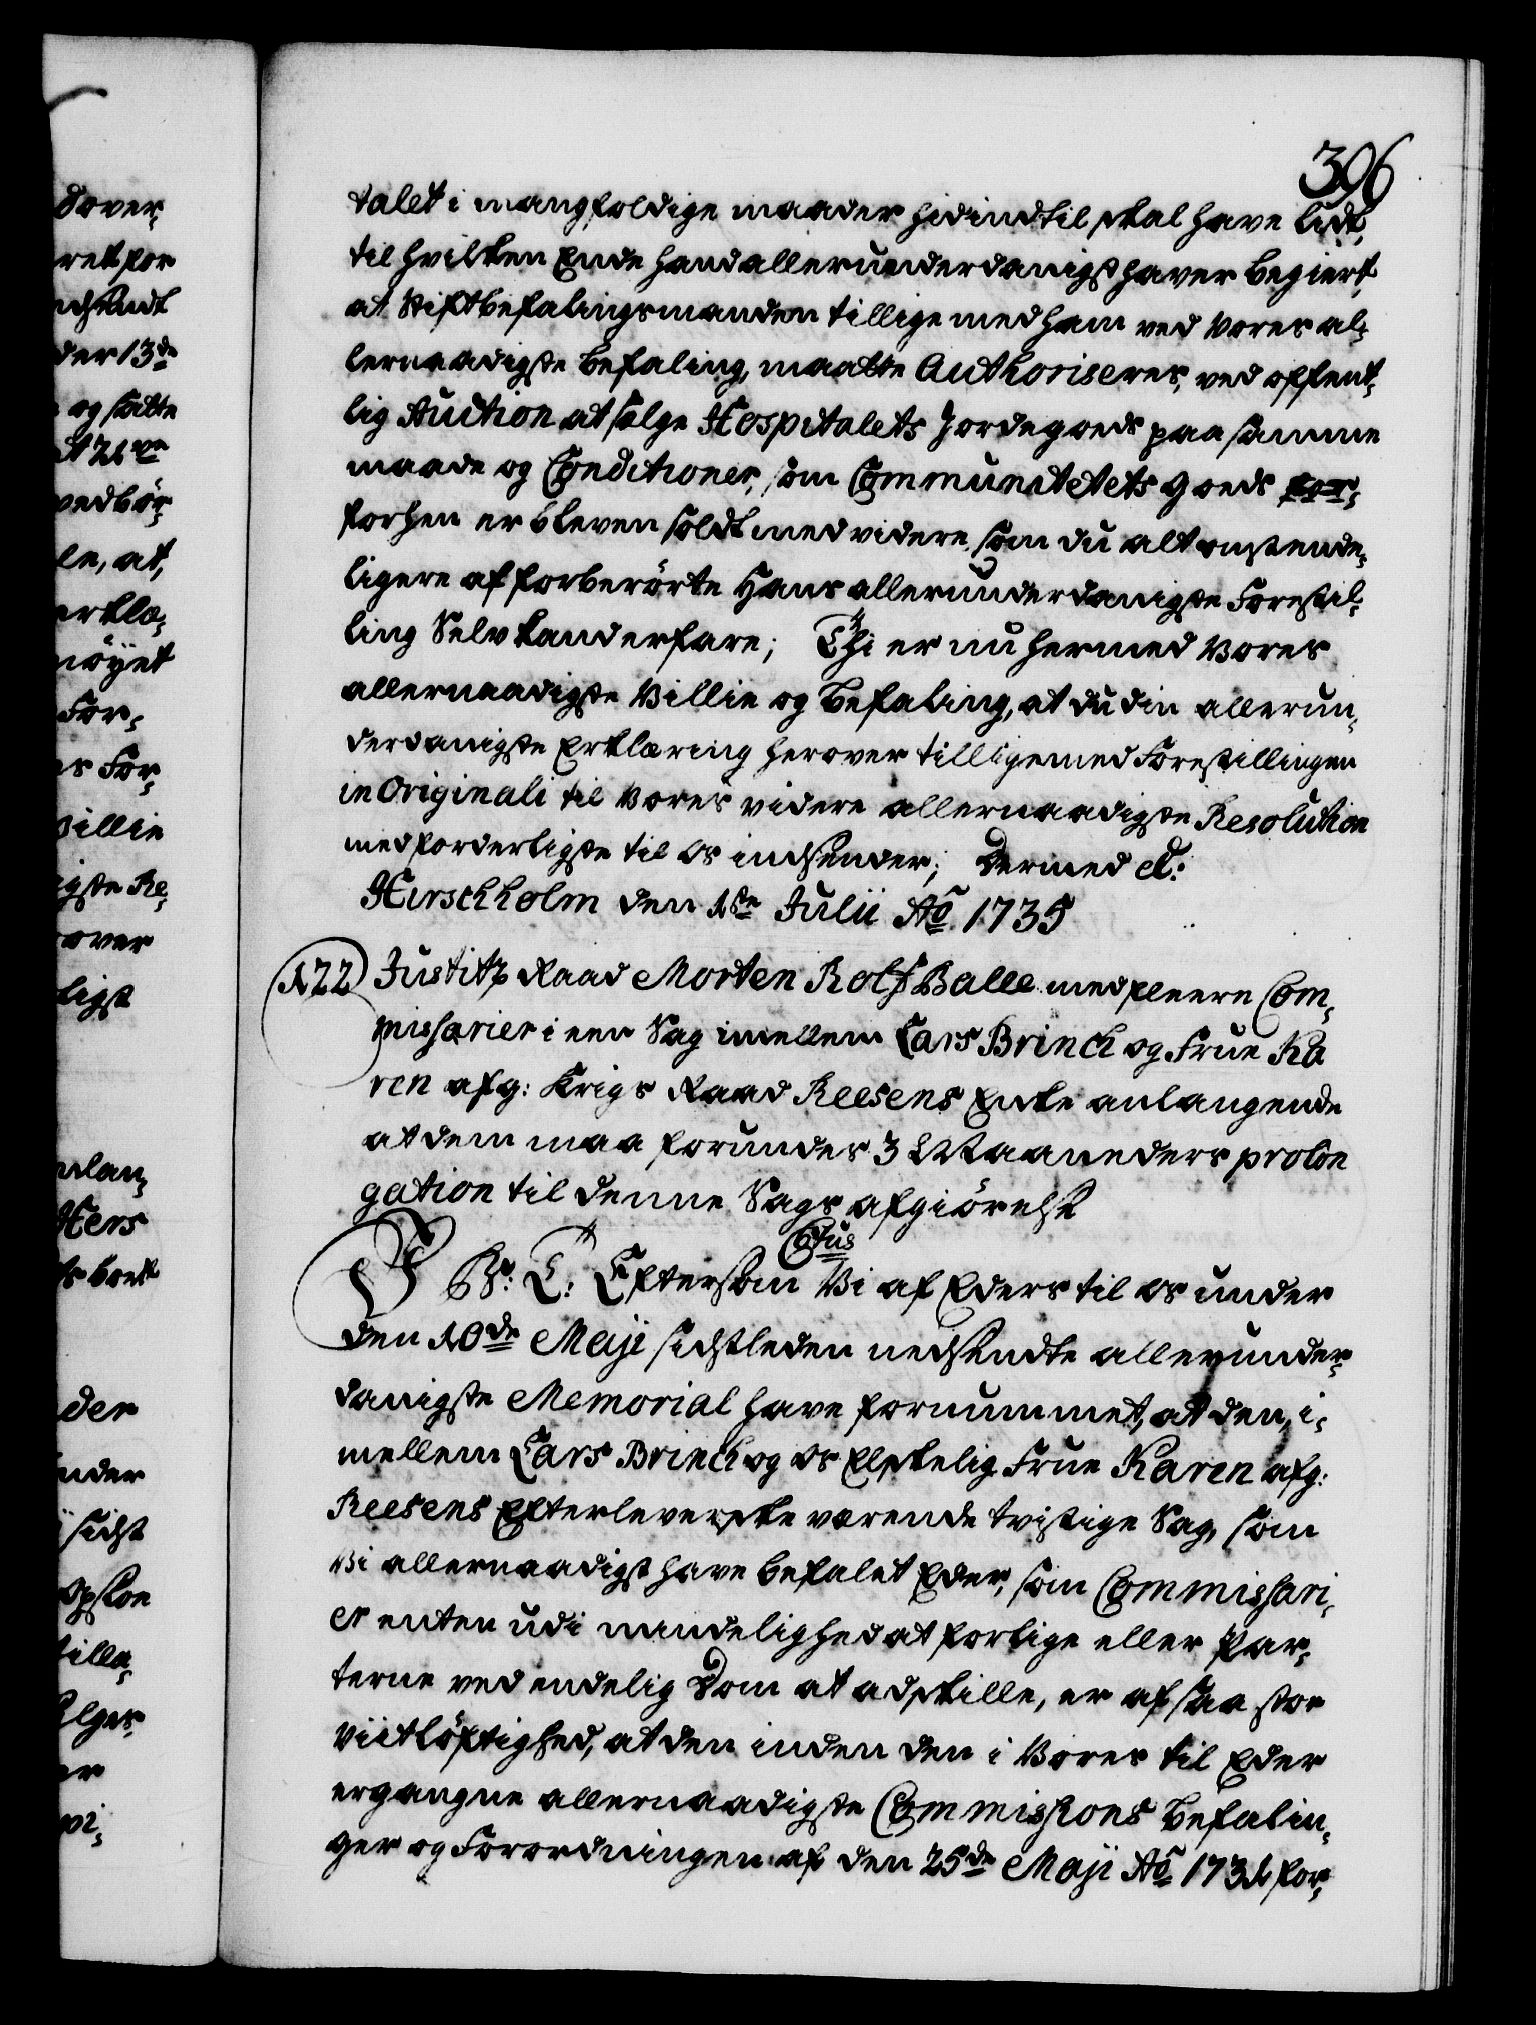 396
talet i mangfoldige maader hidindtil skal have lidt,
til hvilken Ende hand allerunderdanigst haver begiert,
at Stiftbefalingsmanden tillige med ham ved Vores al-
lernaadigste befaling, maatte Authoriseres, ved offent-
lig Auction at sælge Hospitalets Jordegoeds paa samme
maade og Conditioner, som Communitetets Goeds
forhen er bleven soldt med videre, som du alt omstende-
ligere af forberörte Hans allerunderdanigste Forestil-
ling Selv kand erfare; Thi er nu hermed Vores
allernaadigste Villie og befaling, at du din allerun-
derdanigste Erklæring herover tilligemed Forestillingen
in Originali til Vores videre allernaadigste Resolution
med forderligste til Os indsender; Dermed etc:
Hirschholm den 1ste Julii Ao 1735
122 Justitz Raad Morten Rolf Balle med fleere Com-
missarier i een Sag imellem Lars Brinch og Frue Ka
ren afg: Krigs Raad Reesens Encke anlangende
at dem maa forundes 3 Maaneders prolon
gation til denne Sags afgiörelse
C6tus
Efftersom Vi af Eders til Os under
den 10de Maji sidstleden nedsendte allerunder-
danigste Memorial have fornummet, at den, i-
mellem Lars Brinch og Os Elskelig Frue Karen afg:
Reesens Efterleverske værende tvistige Sag, som
Vi allernaadigst have befalet Eder, som Commissari-
er enten udi mindelighed at forlige eller Par-
terne ved endelig Dom at adskille, er af saa stor
Viitlöftighed, at den inden den i Vores til Eder
ergangne allernaadigste Commissions befalin-
ger og Forordningen af den 25de Maji Ao 1731 for-
dover-
ret for
der 13de
og satte
vedbör-
le, at,
erklæ-
nöyet
For-
es For-
Villie
igste Re-
over
ligst
nlan-
Hers
der
nder
sidst